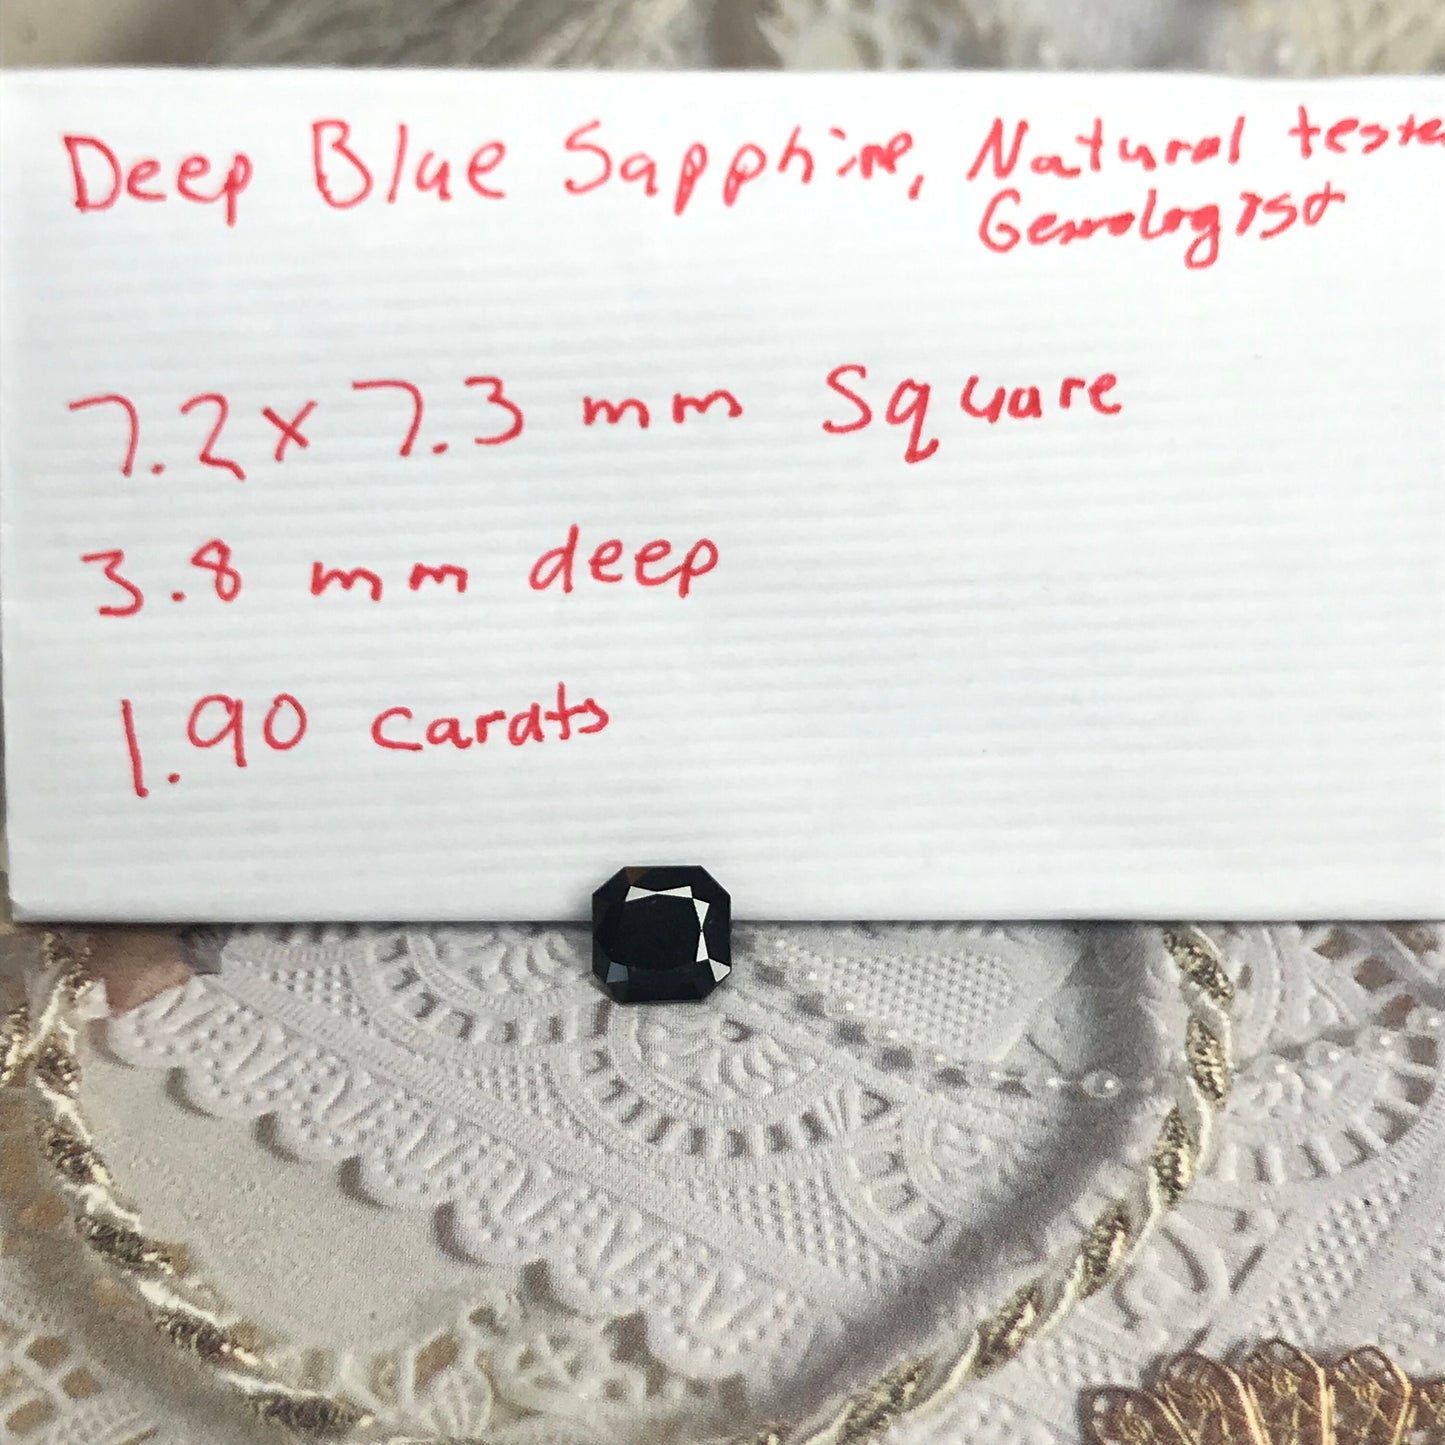 Deep Blue Sapphire, Natural teste
Gemologist
7.2 x 7.3 mm Square
3.8 mm deep
1.90 carats